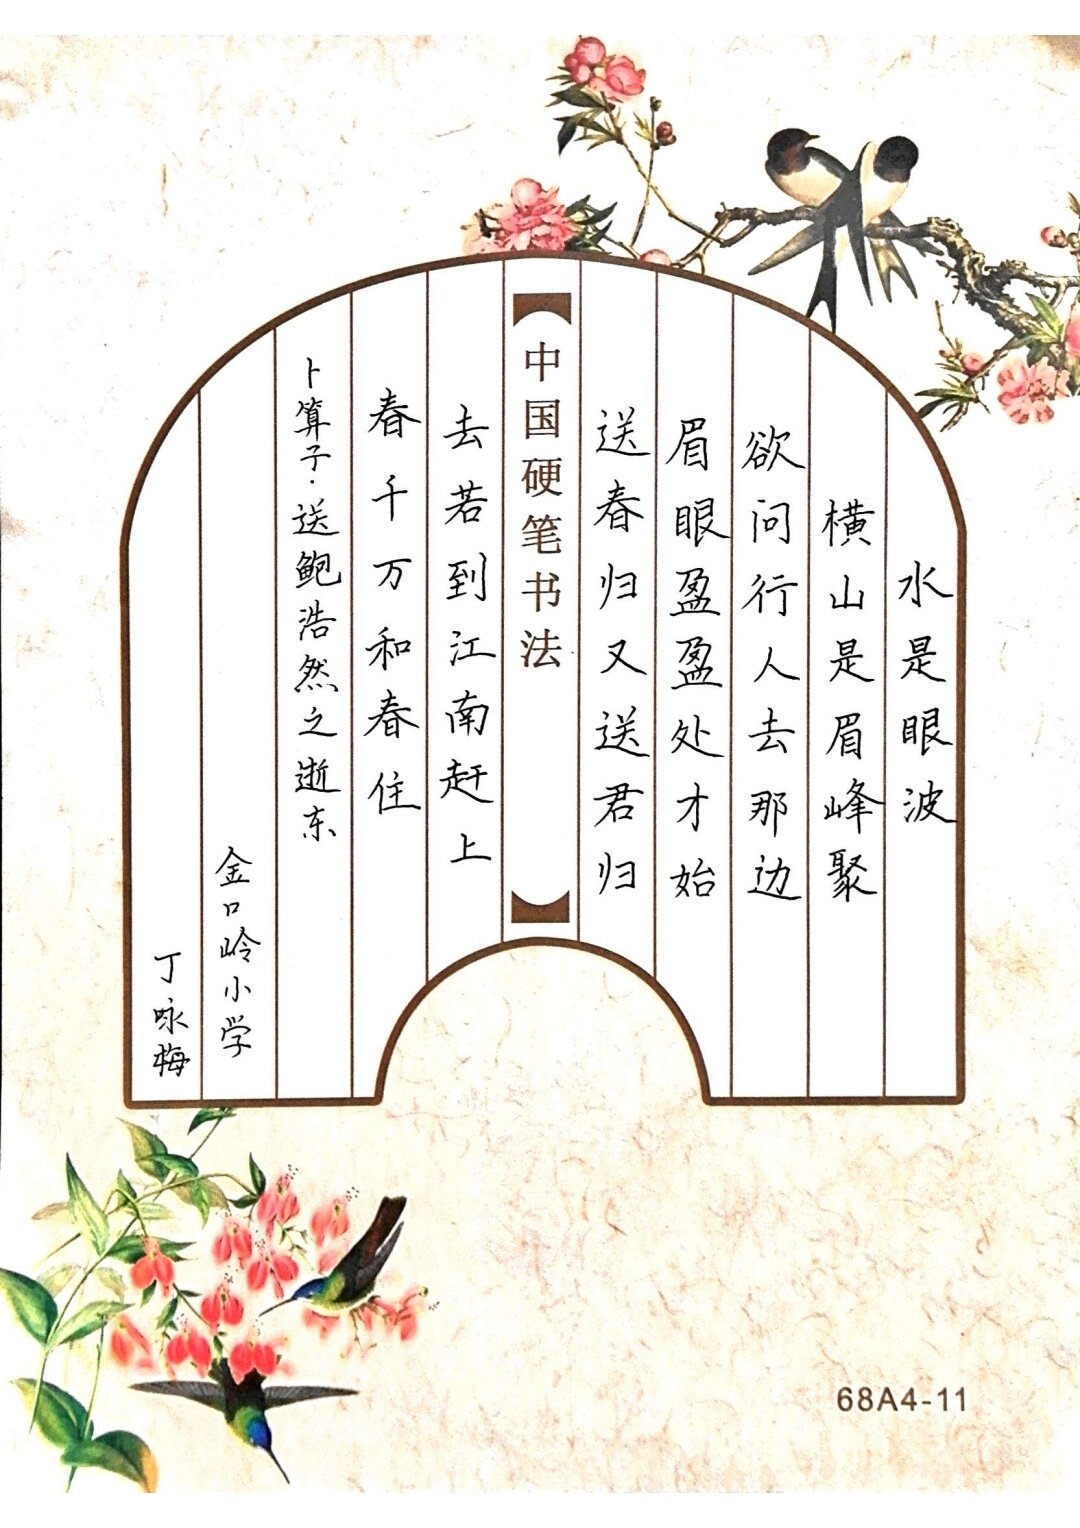 水是眼波
横山是眉峰聚
欲问行人去那边
眉眼盈盈处才始
送春归又送君归
中国硬笔书法
去若到江南赶上
春千万和春住
卜算子·送鲍浩然之逝东
金口岭小学
丁咏梅
68A4-11